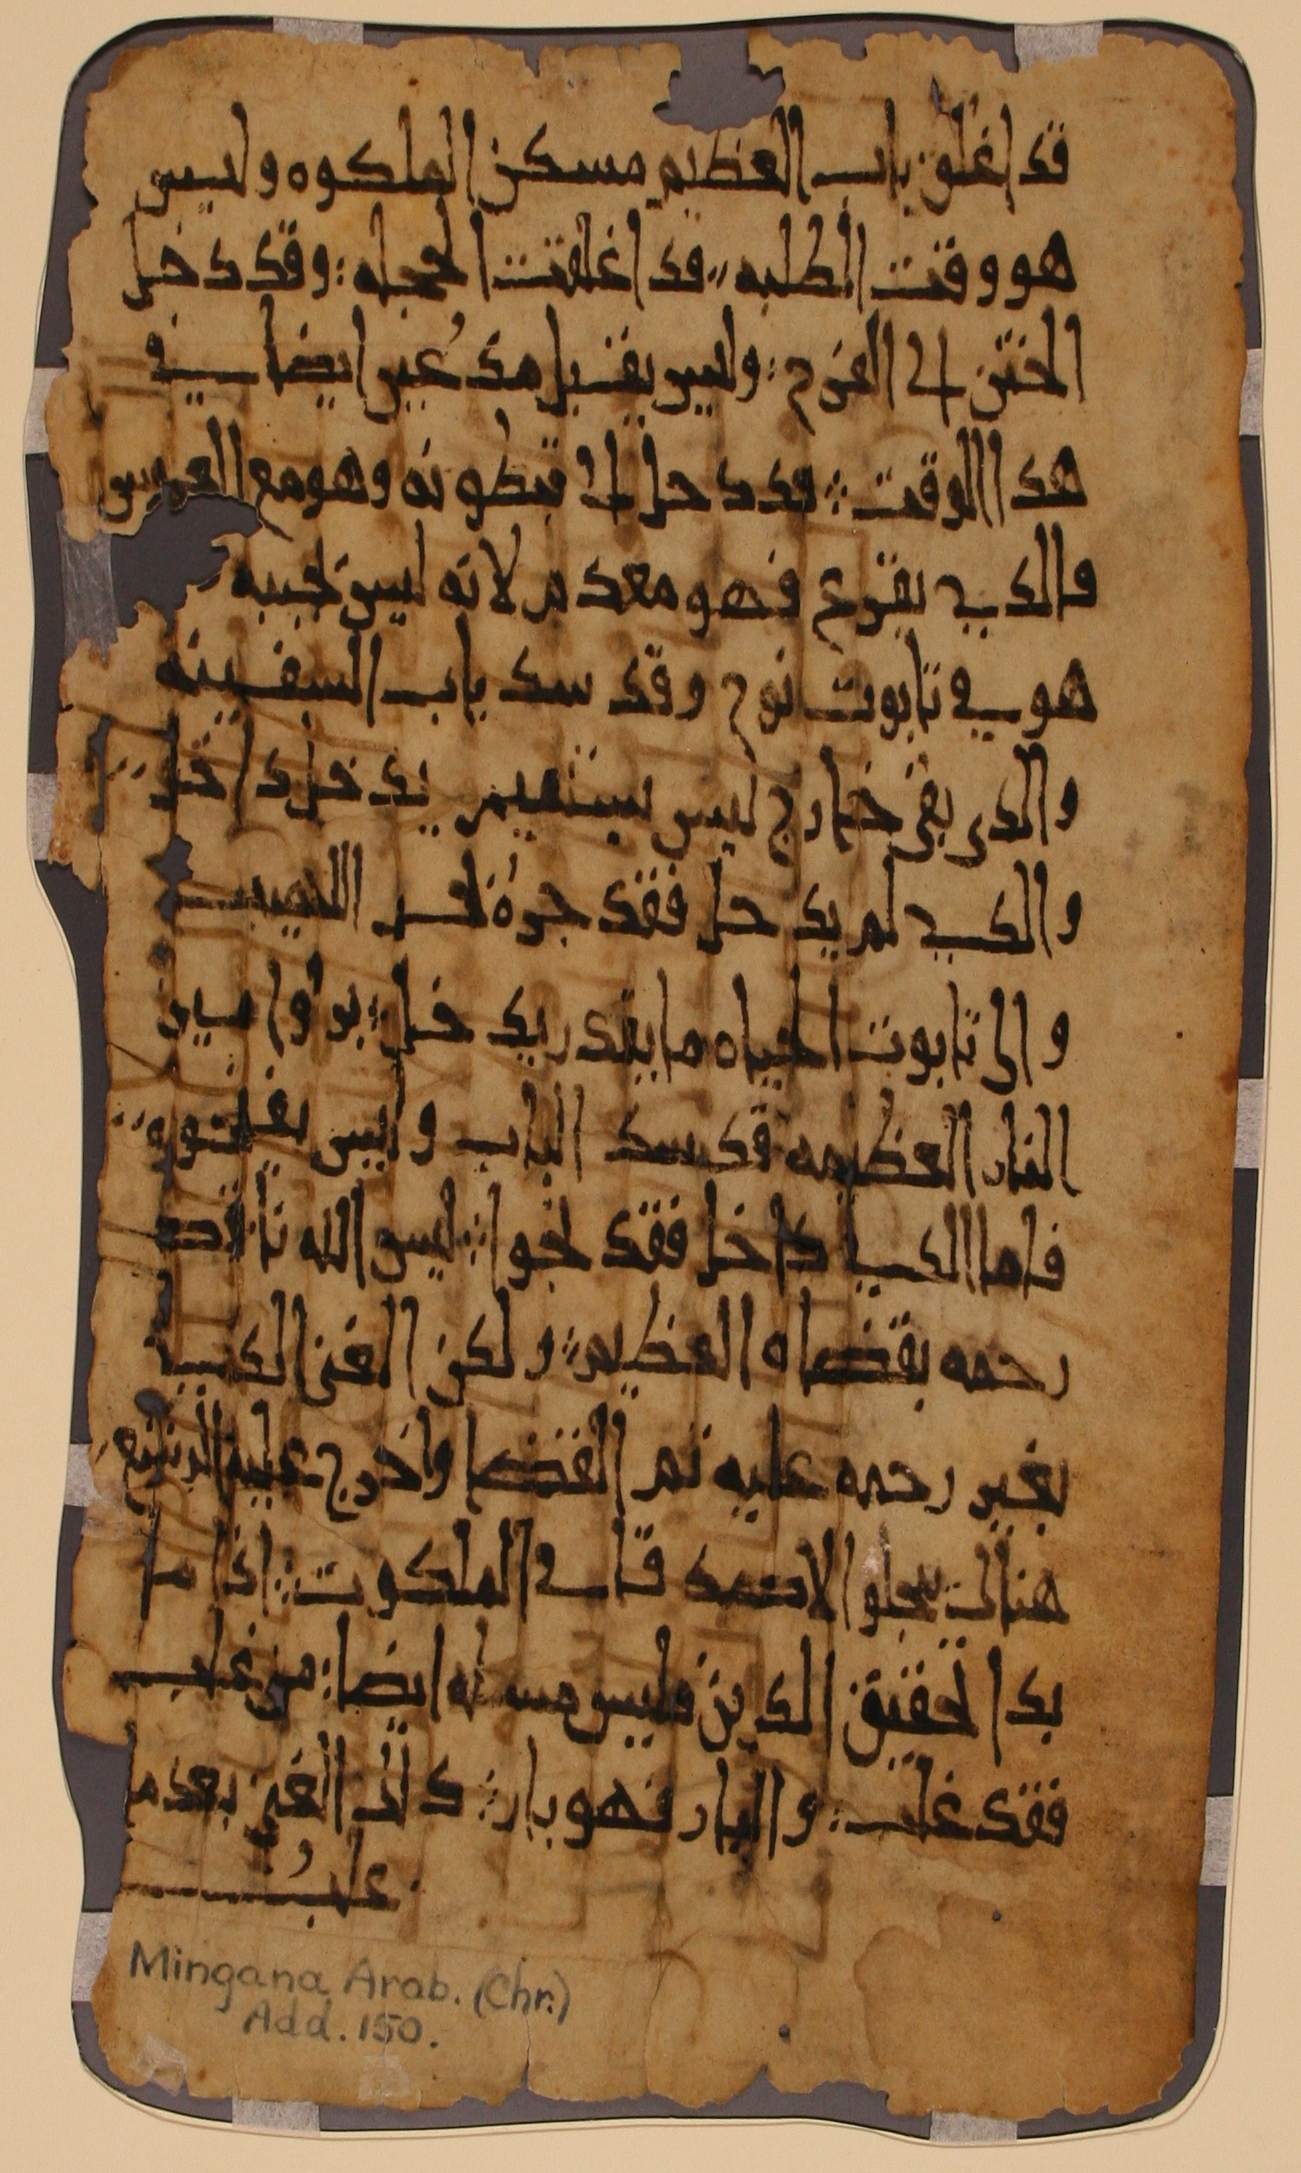 قد اغلق باب العظيم مسكن الملكوه وليس
هو وقت الطلبه قد اغلقت الحجله وقد دخل
الختن الى الفرح وليس يقبل هذ غير ايضا في
هذا الوقت قد دخل الى قيطونه وهو مع العروس
فالذي يقرع فهو معدم لانه ليس يجيبه
هو في تابوت نوح وقد سد باب السفينه
والذي بقي خارج ليس يستقيم يدخل داخل
والذي لم يدخل فقد جره
والى تابوت الحياه ما يقدر يدخل
النار العظيمه قد سد الباب وليس
فاما الذي داخل فقد نجوا ليس الله
رحمه بقضاه العظيم ولكن الغني الذي
بغير رحمه عليه تم القضا واخرج عليه
هنالك الملكوت اذا ما
بدا تحقيق الدين فليس ايضا من غلب
فقد غلب والبار فهو بار ذلك الغني بعدما
غلب
Mingana Arab. (Chr.)
Add. 150.